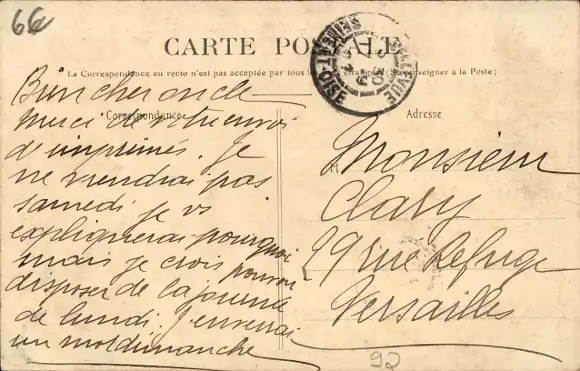 6€
CARTE POSTALE
La Correspondance au recto n'est pas acceptée par tous les étrangers (Se renseigner à la Poste)
Correspondance
Bien cher oncle
Merci de l'envoi
d'imprimés. Je
ne viendrai pas
samedi je vs
expliquerai pourquoi
mais je crois pouvoir
disposer de la journée
de lundi. J'enverrai
un mot dimanche
Adresse
Monsieur
Clary
29 rue Refuge
Versailles
BELLEVUE
SEINE-ET-OISE
92